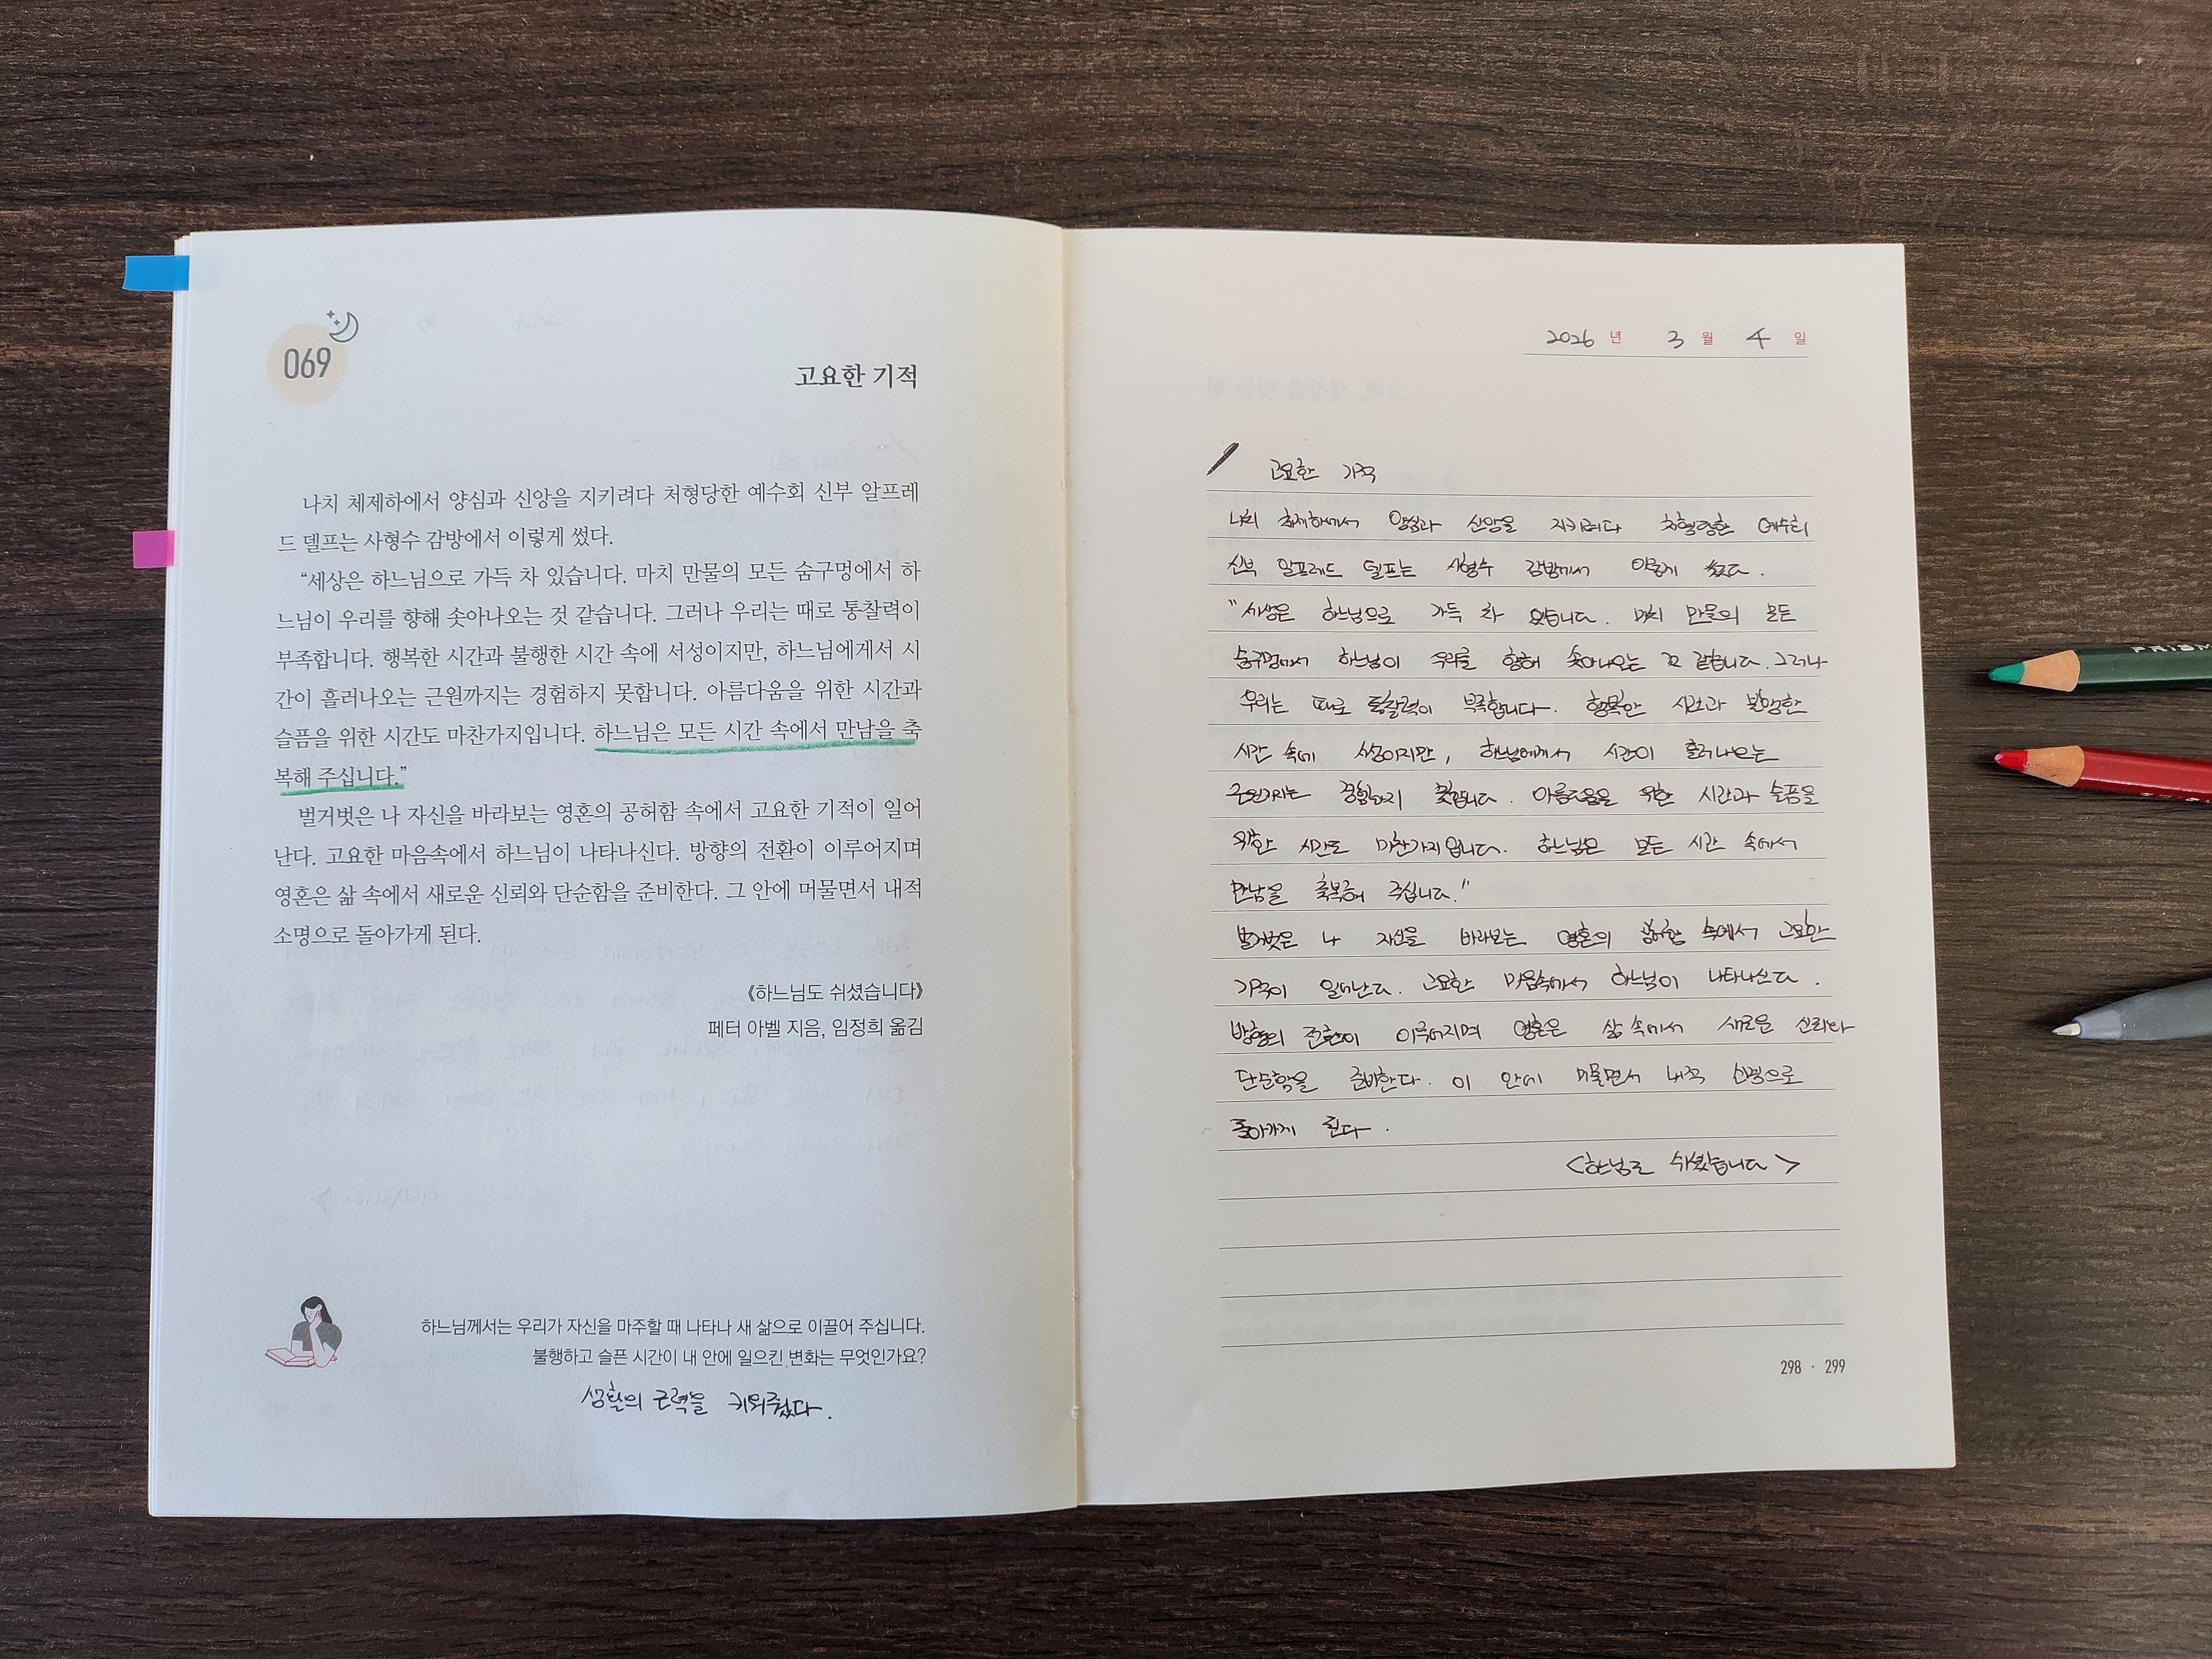 069
고요한 기적
나치 체제하에서 양심과 신앙을 지키려다 처형당한 예수회 신부 알프레
드 델프는 사형수 감방에서 이렇게 썼다.
“세상은 하느님으로 가득 차 있습니다. 마치 만물의 모든 숨구멍에서 하
느님이 우리를 향해 솟아나오는 것 같습니다. 그러나 우리는 때로 통찰력이
부족합니다. 행복한 시간과 불행한 시간 속에 서성이지만, 하느님에게서 시
간이 흘러나오는 근원까지는 경험하지 못합니다. 아름다움을 위한 시간과
슬픔을 위한 시간도 마찬가지입니다. 하느님은 모든 시간 속에서 만남을 축
복해 주십니다.”
벌거벗은 나 자신을 바라보는 영혼의 공허함 속에서 고요한 기적이 일어
난다. 고요한 마음속에서 하느님이 나타나신다. 방향의 전환이 이루어지며
영혼은 삶 속에서 새로운 신뢰와 단순함을 준비한다. 그 안에 머물면서 내적
소명으로 돌아가게 된다.
《하느님도 쉬셨습니다》
페터 아벨 지음, 임정희 옮김
하느님께서는 우리가 자신을 마주할 때 나타나 새 삶으로 이끌어 주십니다.
불행하고 슬픈 시간이 내 안에 일으킨 변화는 무엇인가요?
생활의 근력을 키워줬다.
2026 년 3 월 4 일
고요한 기적
나치 체제하에서 양심과 신앙을 지키려다 처형당한 예수회
신부 알프레드 델프는 사형수 감방에서 이렇게 썼다.
"세상은 하느님으로 가득 차 있습니다. 마치 만물의 모든
숨구멍에서 하느님이 우리를 향해 솟아나오는 것 같습니다. 그러나
우리는 때로 통찰력이 부족합니다. 행복한 시간과 불행한
시간 속에 서성이지만, 하느님에게서 시간이 흘러나오는
근원까지는 경험하지 못합니다. 아름다움을 위한 시간과 슬픔을
위한 시간도 마찬가지입니다. 하느님은 모든 시간 속에서
만남을 축복해 주십니다."
벌거벗은 나 자신을 바라보는 영혼의 공허함 속에서 고요한
기적이 일어난다. 고요한 마음속에서 하느님이 나타나신다.
방향의 전환이 이루어지며 영혼은 삶 속에서 새로운 신뢰와
단순함을 준비한다. 이 안에 머물면서 내적 소명으로
돌아가게 된다.
<하느님도 쉬셨습니다>
298 · 299